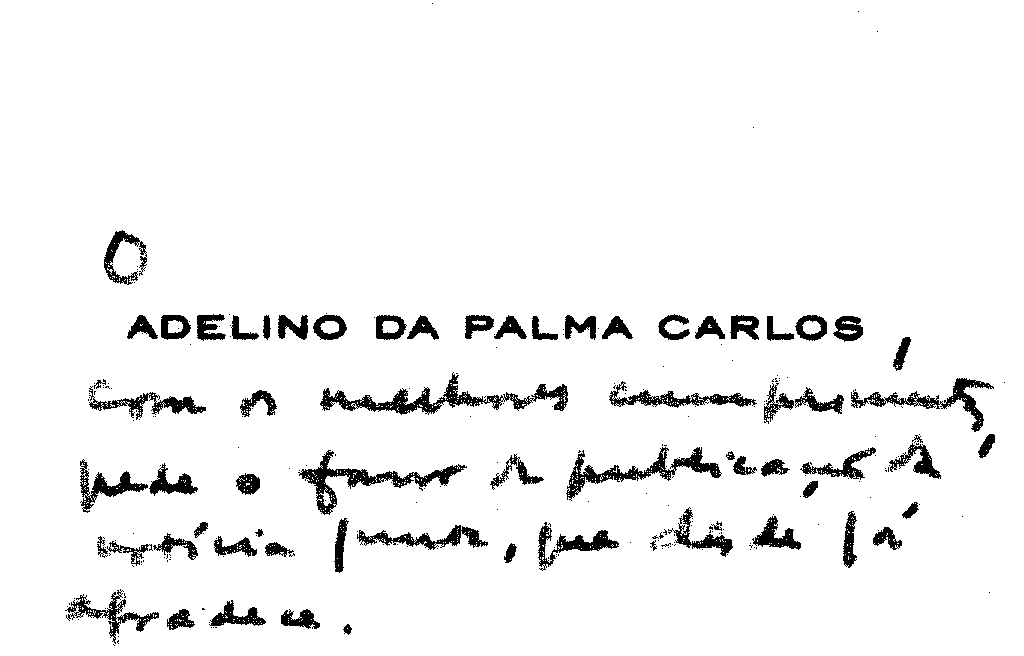 O
ADELINO DA PALMA CARLOS
com os melhores cumprimentos,
pede o favor de publicação da
notícia junta, que desde já
agradece.